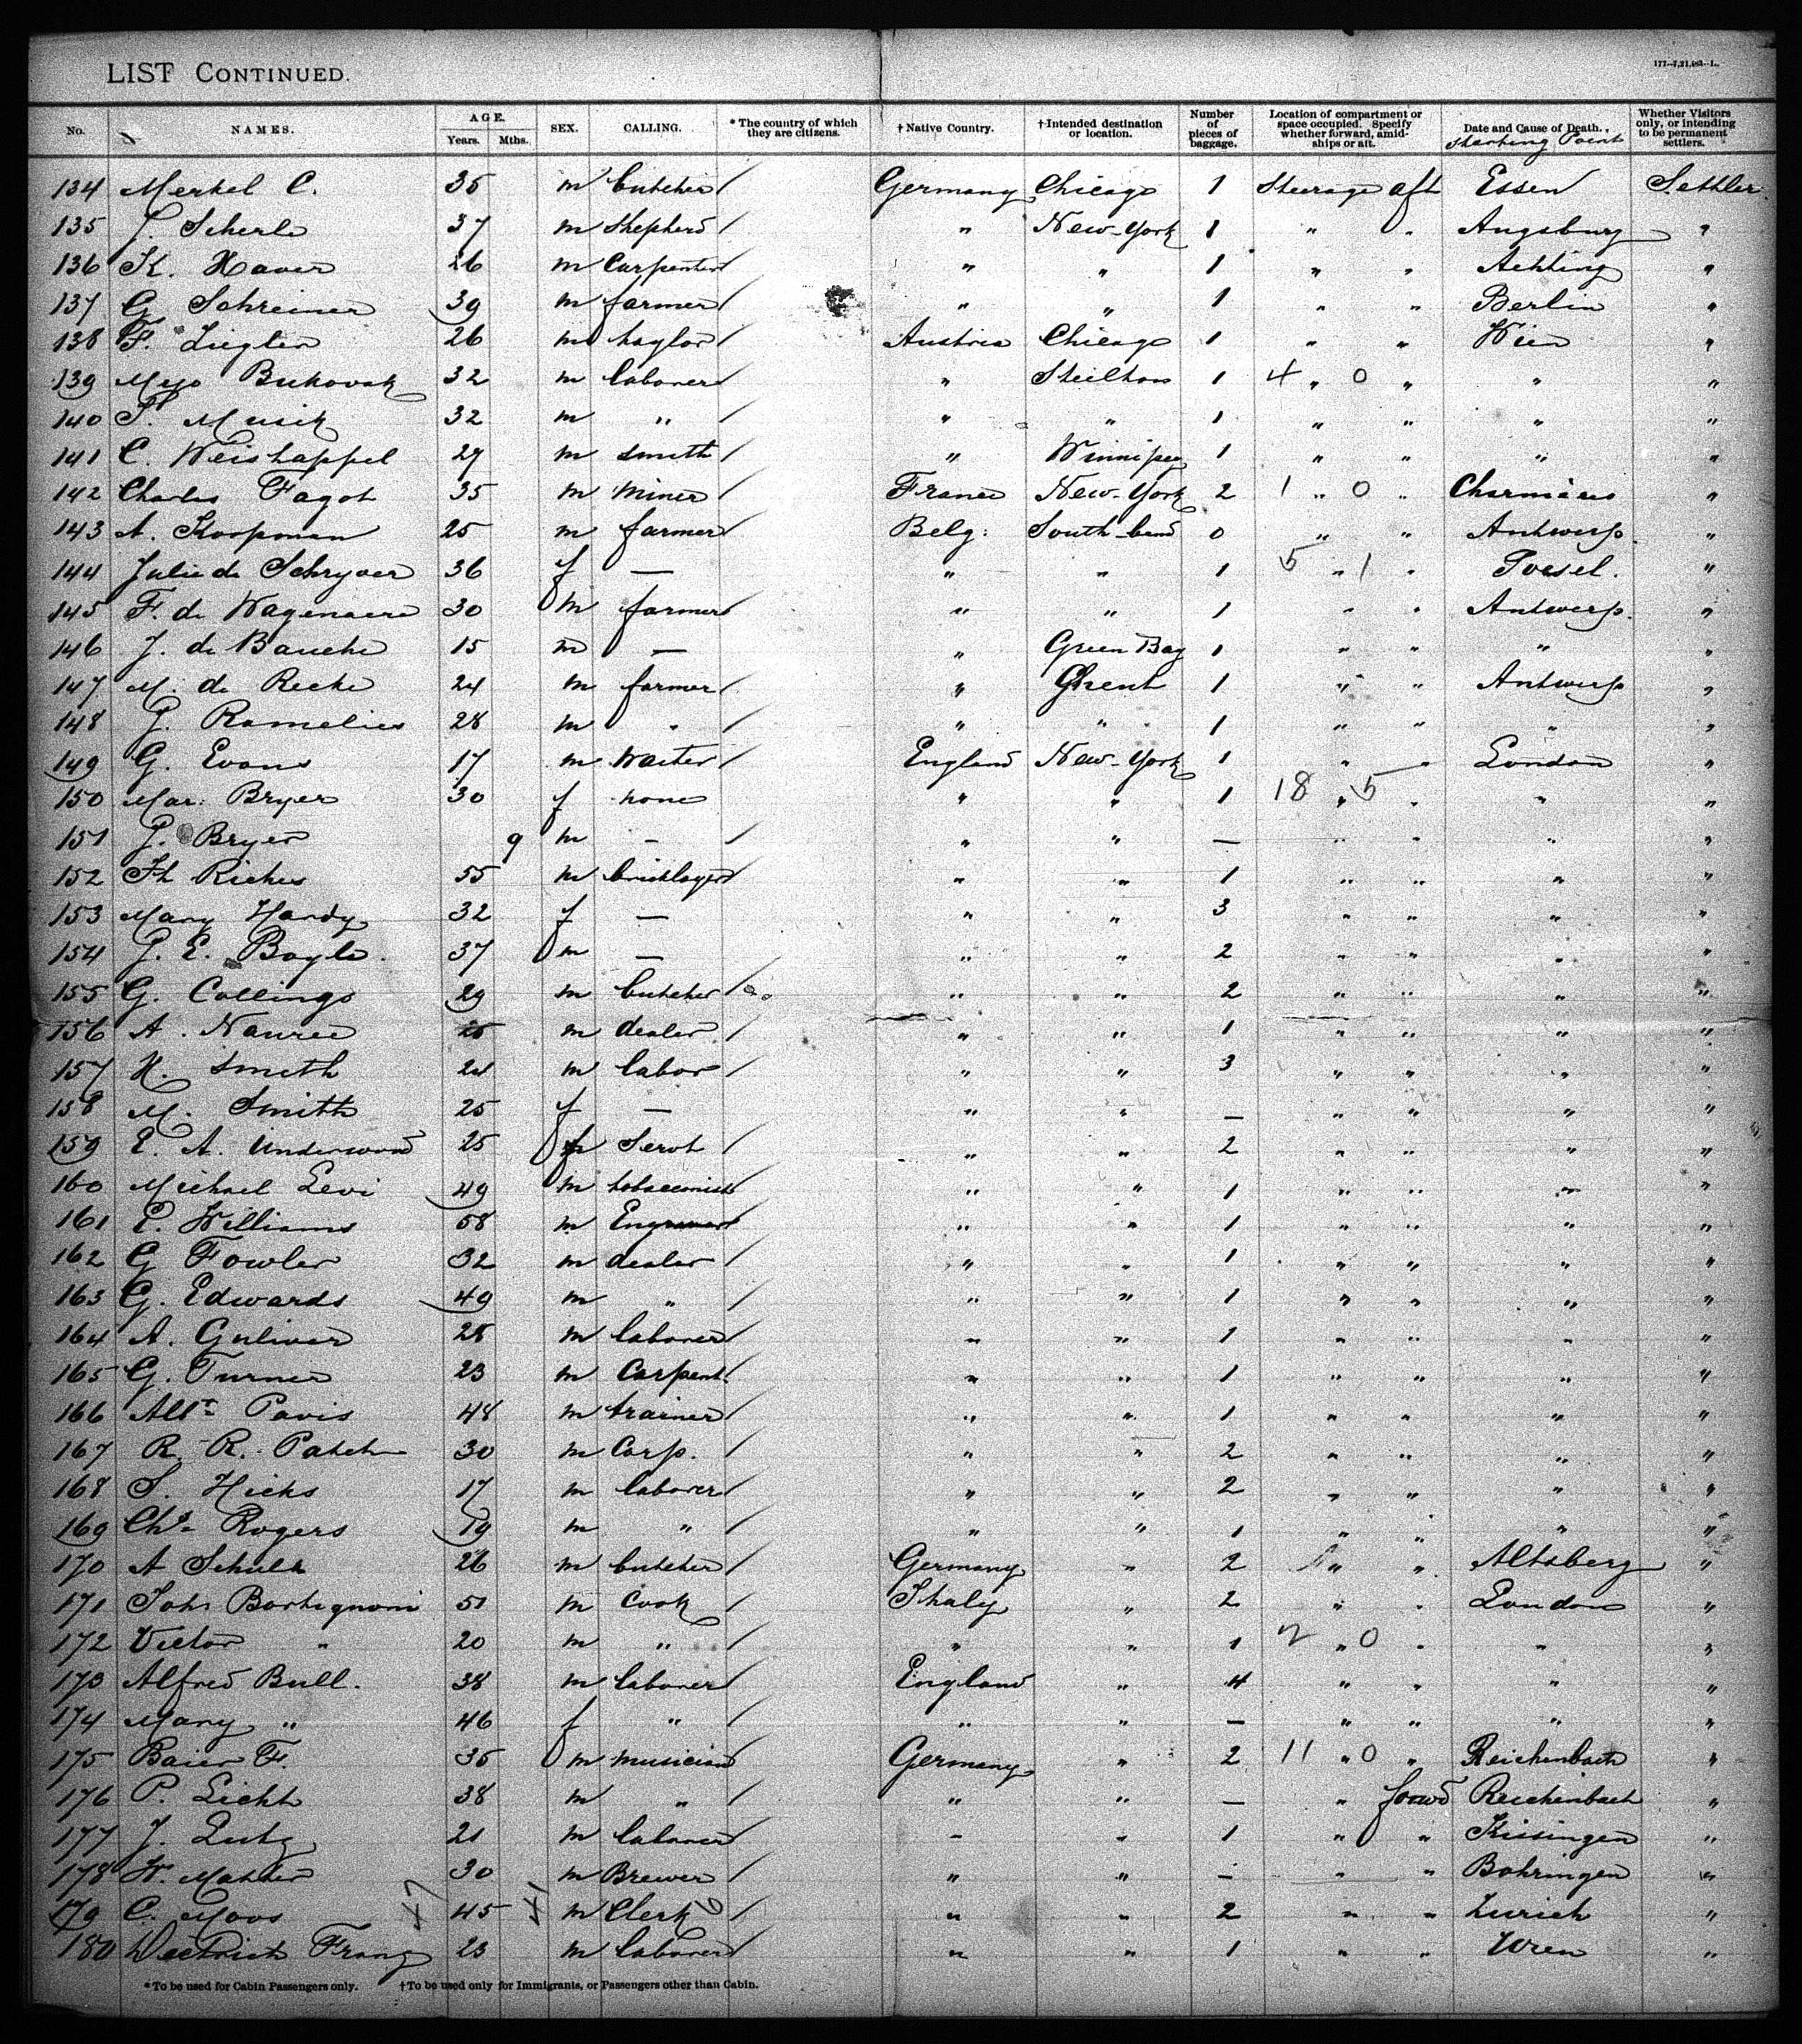 LIST CONTINUED.
177--7,21,083--1..
No. NAMES. AGE. Years. Mths. SEX. CALLING. * The country of which they are citizens. † Native Country. † Intended destination or location. Number of pieces of baggage. Location of compartment or space occupied. Specify whether forward, amidships or aft. Date and Cause of Death. Starting Point Whether Visitors only, or intending to be permanent settlers.
134 Merkel C. 35 m butcher / Germany Chicago 1 Steerage aft Essen Settler
135 J. Scherle 37 m Shepherd / " New-York 1 " " Augsburg "
136 K. Xaver 26 m Carpenter / " " 1 " " Achting "
137 G Schreiner 39 m farmer / " " 1 " " Berlin "
138 F. Ziegler 26 m taylor / Austria Chicago 1 " " Wien "
139 Mejo Bukovak 32 m laborer / " Steilton 1 4 " 0 " " "
140 T. Musik 32 m " / " " 1 " " " "
141 C. Weishappel 29 m smith / " Winnipeg 1 " " " "
142 Charles Fagot 35 m miner / France New-York 2 1 " 0 " "
143 A. Koopman 25 m farmer / Belg: South bend 0 " " Antwerp. "
144 Julie de Schryver 36 f — " " 1 5 " 1 " "
145 F. de Wagenaere 30 m farmer / " " 1 " " Antwerp. "
146 J. de Bauche 15 m — " Green Bay 1 " " " "
147 M. de Recke 24 m farmer / " Ghent 1 " " Antwerp "
148 G. Ramelies 28 m " / " " 1 " " " "
149 G. Evans 17 m Waiter / England New-York 1 " " London "
150 Mar: Bryer 30 f none " " 1 18 " 5 " " "
151 G. Bryer 9 m - / " " — " " " "
152 Fk Riches 55 m bricklayer / " " 1 " " " "
153 Mary Hardy 32 f — " " 3 " " " "
154 G. E. Bayle. 37 m — " " 2 " " " "
155 G. Collings 29 m butcher / " " 2 " " " "
156 A. Nauree 25 m dealer / " " 1 " " " "
157 H. Smith 24 m labor / " " 3 " " " "
158 M. Smith 25 f — " " — " " " "
159 E. A. Underwood 25 f Servt / " " 2 " " " "
160 Michael Levi 49 m tobacconist " " 1 " " " "
161 E. Williams 58 m Engraver / " " 1 " " " "
162 G Fowler 32 m dealer / " " 1 " " " "
163 G. Edwards 49 m " / " " 1 " " " "
164 A. Guliver 28 m laborer / " " 1 " " " "
165 G. Turner 23 m Carpent. / " " 1 " " " "
166 Albt Pavis 48 m trainer / " " 1 " " " "
167 R. R. Patch 30 m Carp. / " " 2 " " " "
168 S. Hicks 17 m laborer / " " 2 " " " "
169 Chs Rogers 19 m " / " " 1 " " " "
170 A Schulz 26 m butcher / Germany " 2 " " Altsberg "
171 John Bartignoni 51 m Cook / Italy " 2 " " London "
172 Victor " 20 m " / " " 1 2 " 0 " " "
173 Alfred Bull. 38 m laborer / England " 4 " " " "
174 Mary " 46 f " / " " — " " " "
175 Baier F. 35 m musician / Germany " 2 11 " 0 " Reichenbach "
176 P. Licht 38 m " / " " — " forwd Reichenbach "
177 J. Lutz 21 m laborer / " " 1 " " Kissingen "
178 W. Mahler 30 m Brewer / " " — " " Bohringen "
179 C. Moos 47 45 41 m Clerk / " " 2 " " Zurich "
180 Dietrich Franz 23 m laborer / " " 1 " " Wien "
* To be used for Cabin Passengers only. † To be used only for Immigrants, or Passengers other than Cabin.